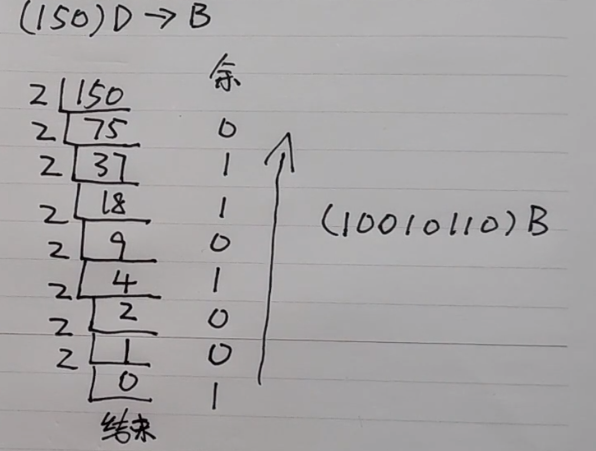 (150)D→B
余
2 150
2 75 0
2 37 1
2 18 1
2 9 0
2 4 1
2 2 0
2 1 0
0 1
结束
(10010110)B